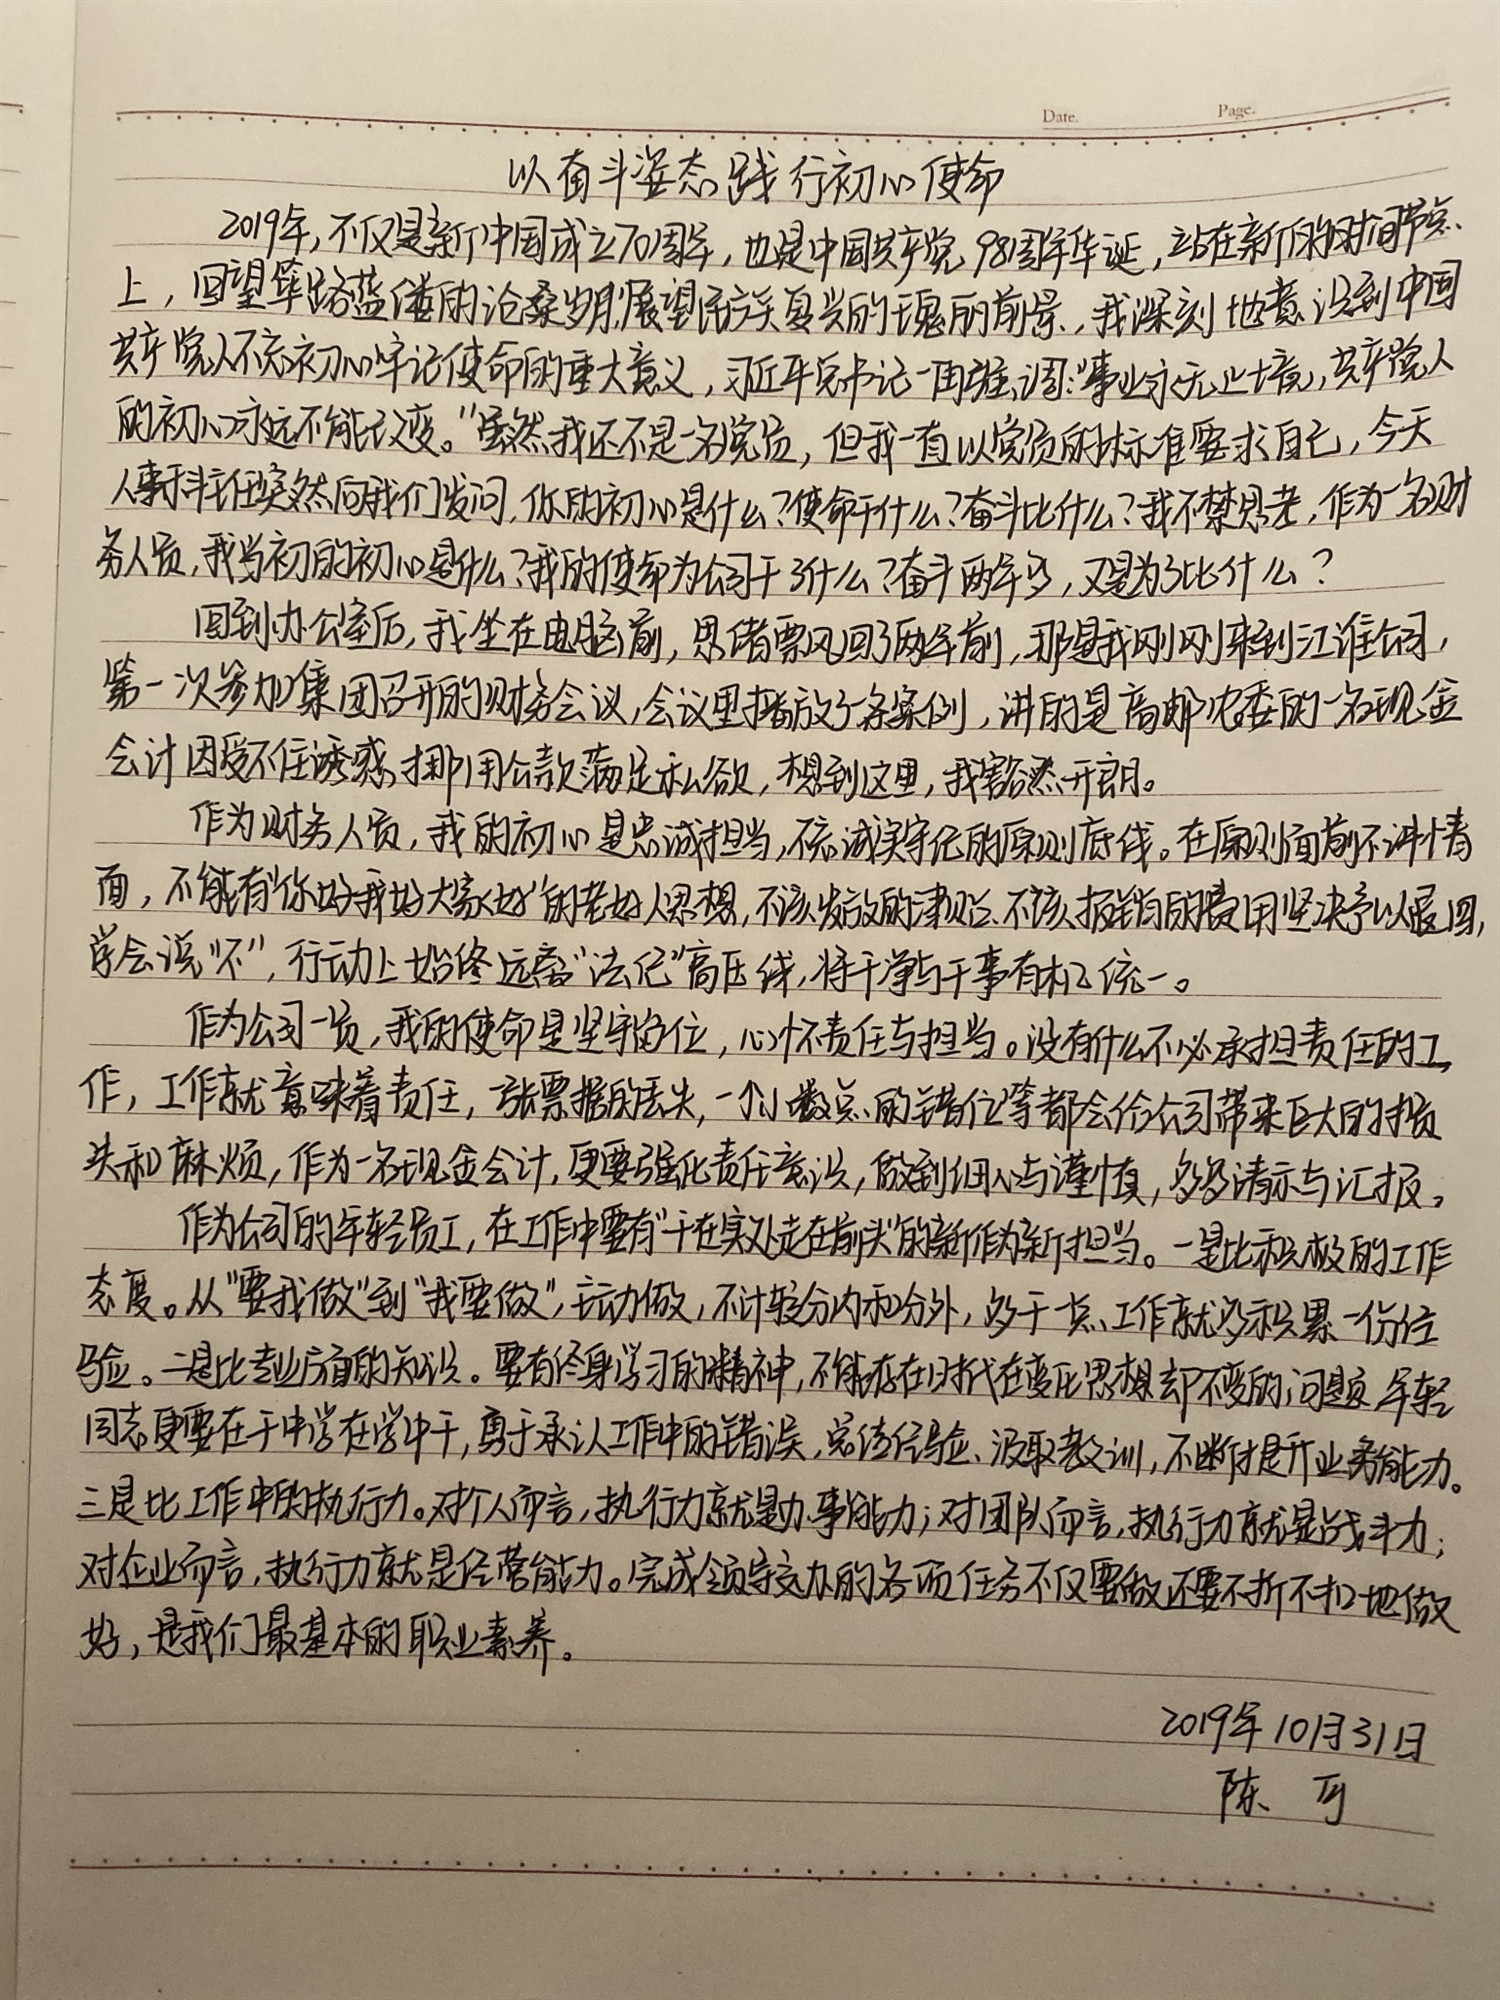 Date.
Page.
以奋斗姿态践行初心使命
2019年，不仅是新中国成立70周年，也是中国共产党98周年华诞，站在新的时间节点
上，回望筚路蓝缕的沧桑岁月，展望民族复兴的瑰丽前景，我深刻地意识到中国
共产党人不忘初心牢记使命的重大意义，习近平总书记一再强调：“事业永无止境，共产党人
的初心永远不能改变。”虽然我还不是一名党员，但我一直以党员的标准要求自己，今天
人事科主任突然向我们发问，你的初心是什么？使命干什么？奋斗比什么？我不禁思考，作为一名财
务人员，我当初的初心是什么？我的使命为公司干了什么？奋斗两年多，又是为了比什么？
回到办公室后，我坐在电脑前，思绪飘回了两年前，那是我刚刚来到江淮公司，
第一次参加集团召开的财务会议，会议里播放了一条案例，讲的是高邮农委的一名现金
会计因受不住诱惑，挪用公款满足私欲，想到这里，我豁然开朗。
作为财务人员，我的初心是忠诚担当，不忘诚实守纪的原则底线。在原则面前不讲情
面，不能有“你好我好大家好”的老好人思想，不该发放的津贴、不该报销的费用坚决予以退回，
学会说“不”，行动上始终远离“法纪”高压线，将干净与干事有机统一。
作为公司一员，我的使命是坚守岗位，心怀责任与担当。没有什么不必承担责任的工
作，工作就意味着责任，一张票据的丢失，一个小数点的错位等都会给公司带来巨大的损
失和麻烦，作为一名现金会计，更要强化责任意识，做到细心与谨慎，多多请示与汇报。
作为公司的年轻员工，在工作中要有“干在实处走在前头”的新作为新担当。一是比积极的工作
态度。从“要我做”到“我要做”，主动做，不计较分内和分外，多干一点工作就多积累一份经
验。二是比专业方面的知识。要有终身学习的精神，不能存在时代在变化思想却不变的问题，年轻
同志更要在干中学在学中干，勇于承认工作中的错误，总结经验、汲取教训，不断提升业务能力。
三是比工作中的执行力。对个人而言，执行力就是办事能力；对团队而言，执行力就是战斗力；
对企业而言，执行力就是经营能力。完成领导交办的各项任务不仅要做还要不折不扣地做
好，是我们最基本的职业素养。
2019年10月31日
陈